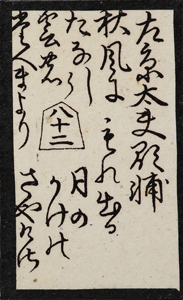 左京太夫顕輔
秋風に
たなひく
雲の
たへまより
もれ出る
月の
かけの
さやけさ
八十二